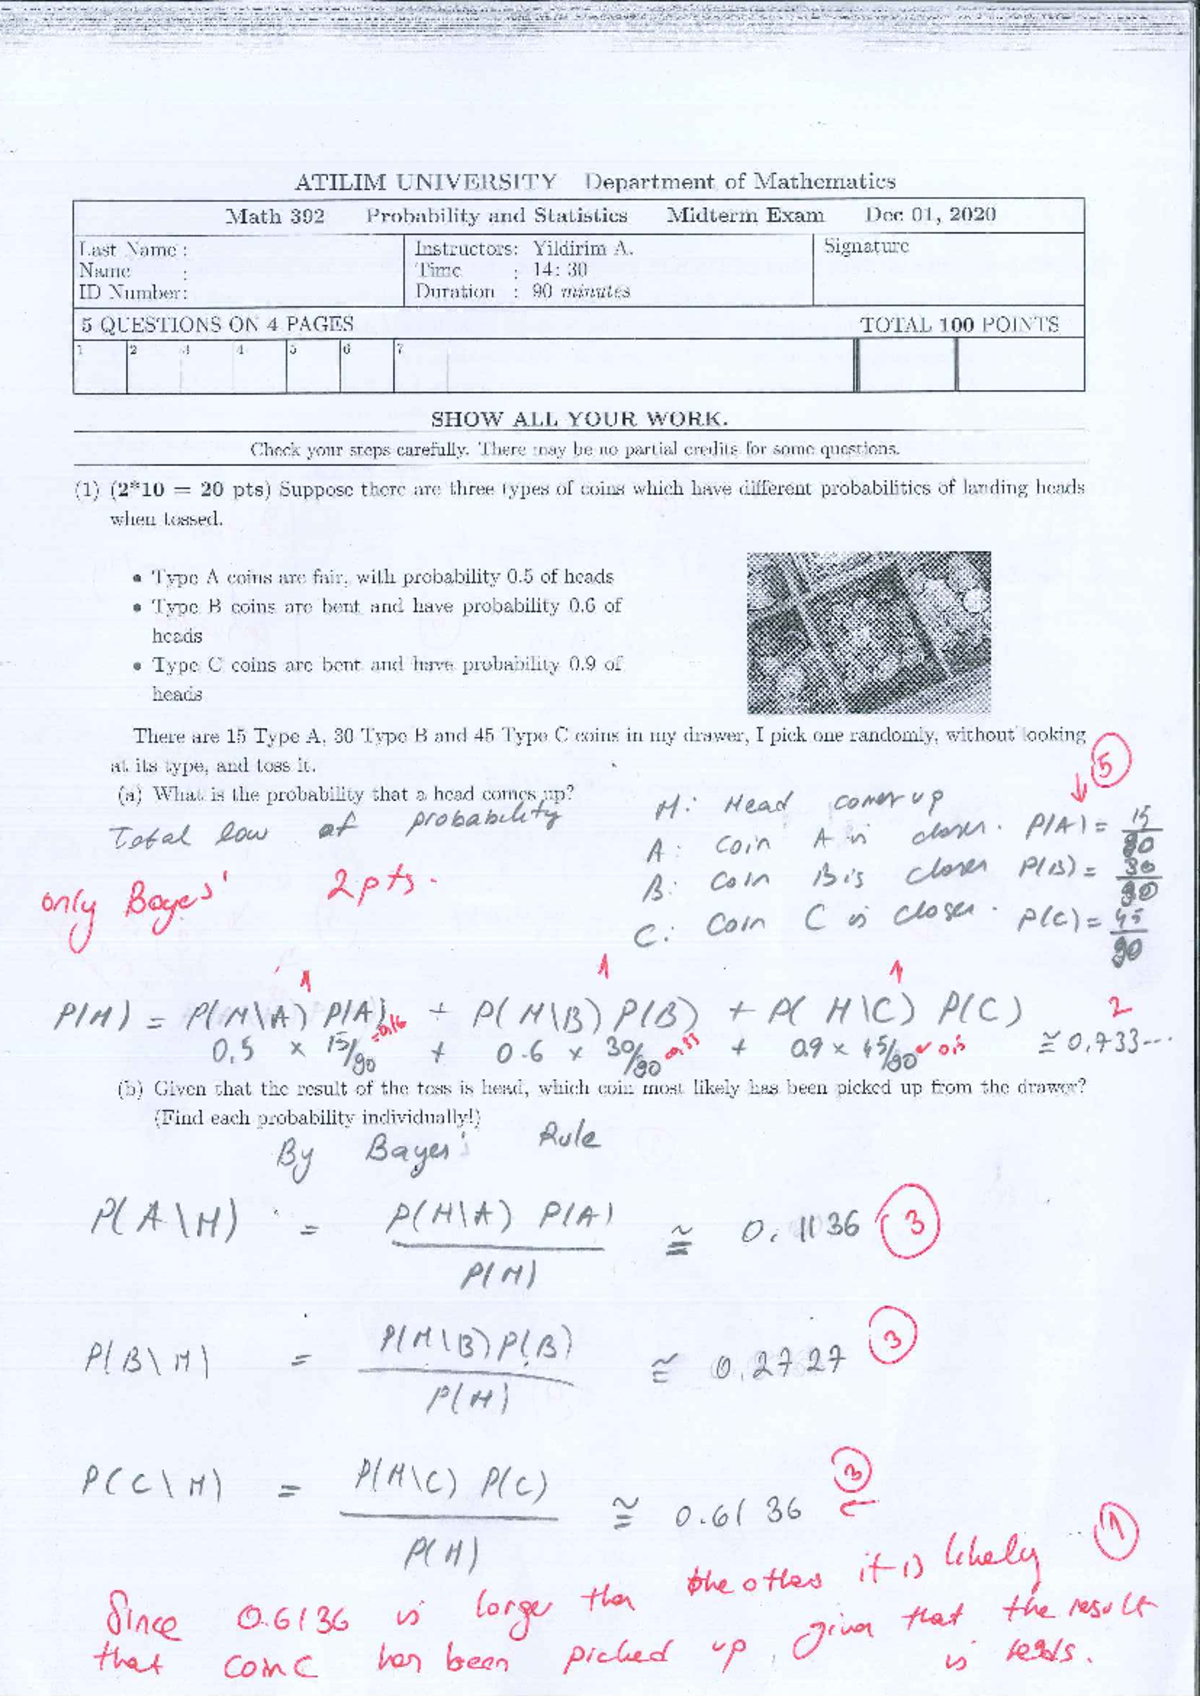 ATILIM UNIVERSITY Department of Mathematics
Math 392 Probability and Statistics Midterm Exam Dec 01, 2020
Last Name :
Name :
ID Number:
Instructors: Yildirim A.
Time : 14: 30
Duration : 90 minutes
Signature
5 QUESTIONS ON 4 PAGES TOTAL 100 POINTS
1 2 3 4 5 6 7
SHOW ALL YOUR WORK.
Check your steps carefully. There may be no partial credits for some questions.
(1) (2*10 = 20 pts) Suppose there are three types of coins which have different probabilities of landing heads
when tossed.
• Type A coins are fair, with probability 0.5 of heads
• Type B coins are bent and have probability 0.6 of
heads
• Type C coins are bent and have probability 0.9 of
heads
There are 15 Type A, 30 Type B and 45 Type C coins in my drawer, I pick one randomly, without looking
at its type, and toss it.
(a) What is the probability that a head comes up?
5
Total low of probability
H: Head comes up
A: Coin A is closer. P(A) = 15/90
B: Coin B is closer P(B) = 30/90
C: Coin C is closer. P(C) = 45/90
only Bayes' 2pts.
1 1 1 2
P(H) = P(H\A) P(A) + P(H\B) P(B) + P(H\C) P(C)
0,5 x 15/90 =0.16 + 0.6 x 30/90 0.33 + 0.9 x 45/90 0.5 ≅ 0,733...
(b) Given that the result of the toss is head, which coin most likely has been picked up from the drawer?
(Find each probability individually!)
By Bayes's Rule
P(A\H) = P(H\A) P(A) / P(H) ≅ 0.1136 3
P(B\H) = P(H\B) P(B) / P(H) ≅ 0.2727 3
P(C\H) = P(H\C) P(C) / P(H) ≅ 0.6136 3
1
Since 0.6136 is larger than the others it is likely
that coin C has been picked up, given that the result
is heads.